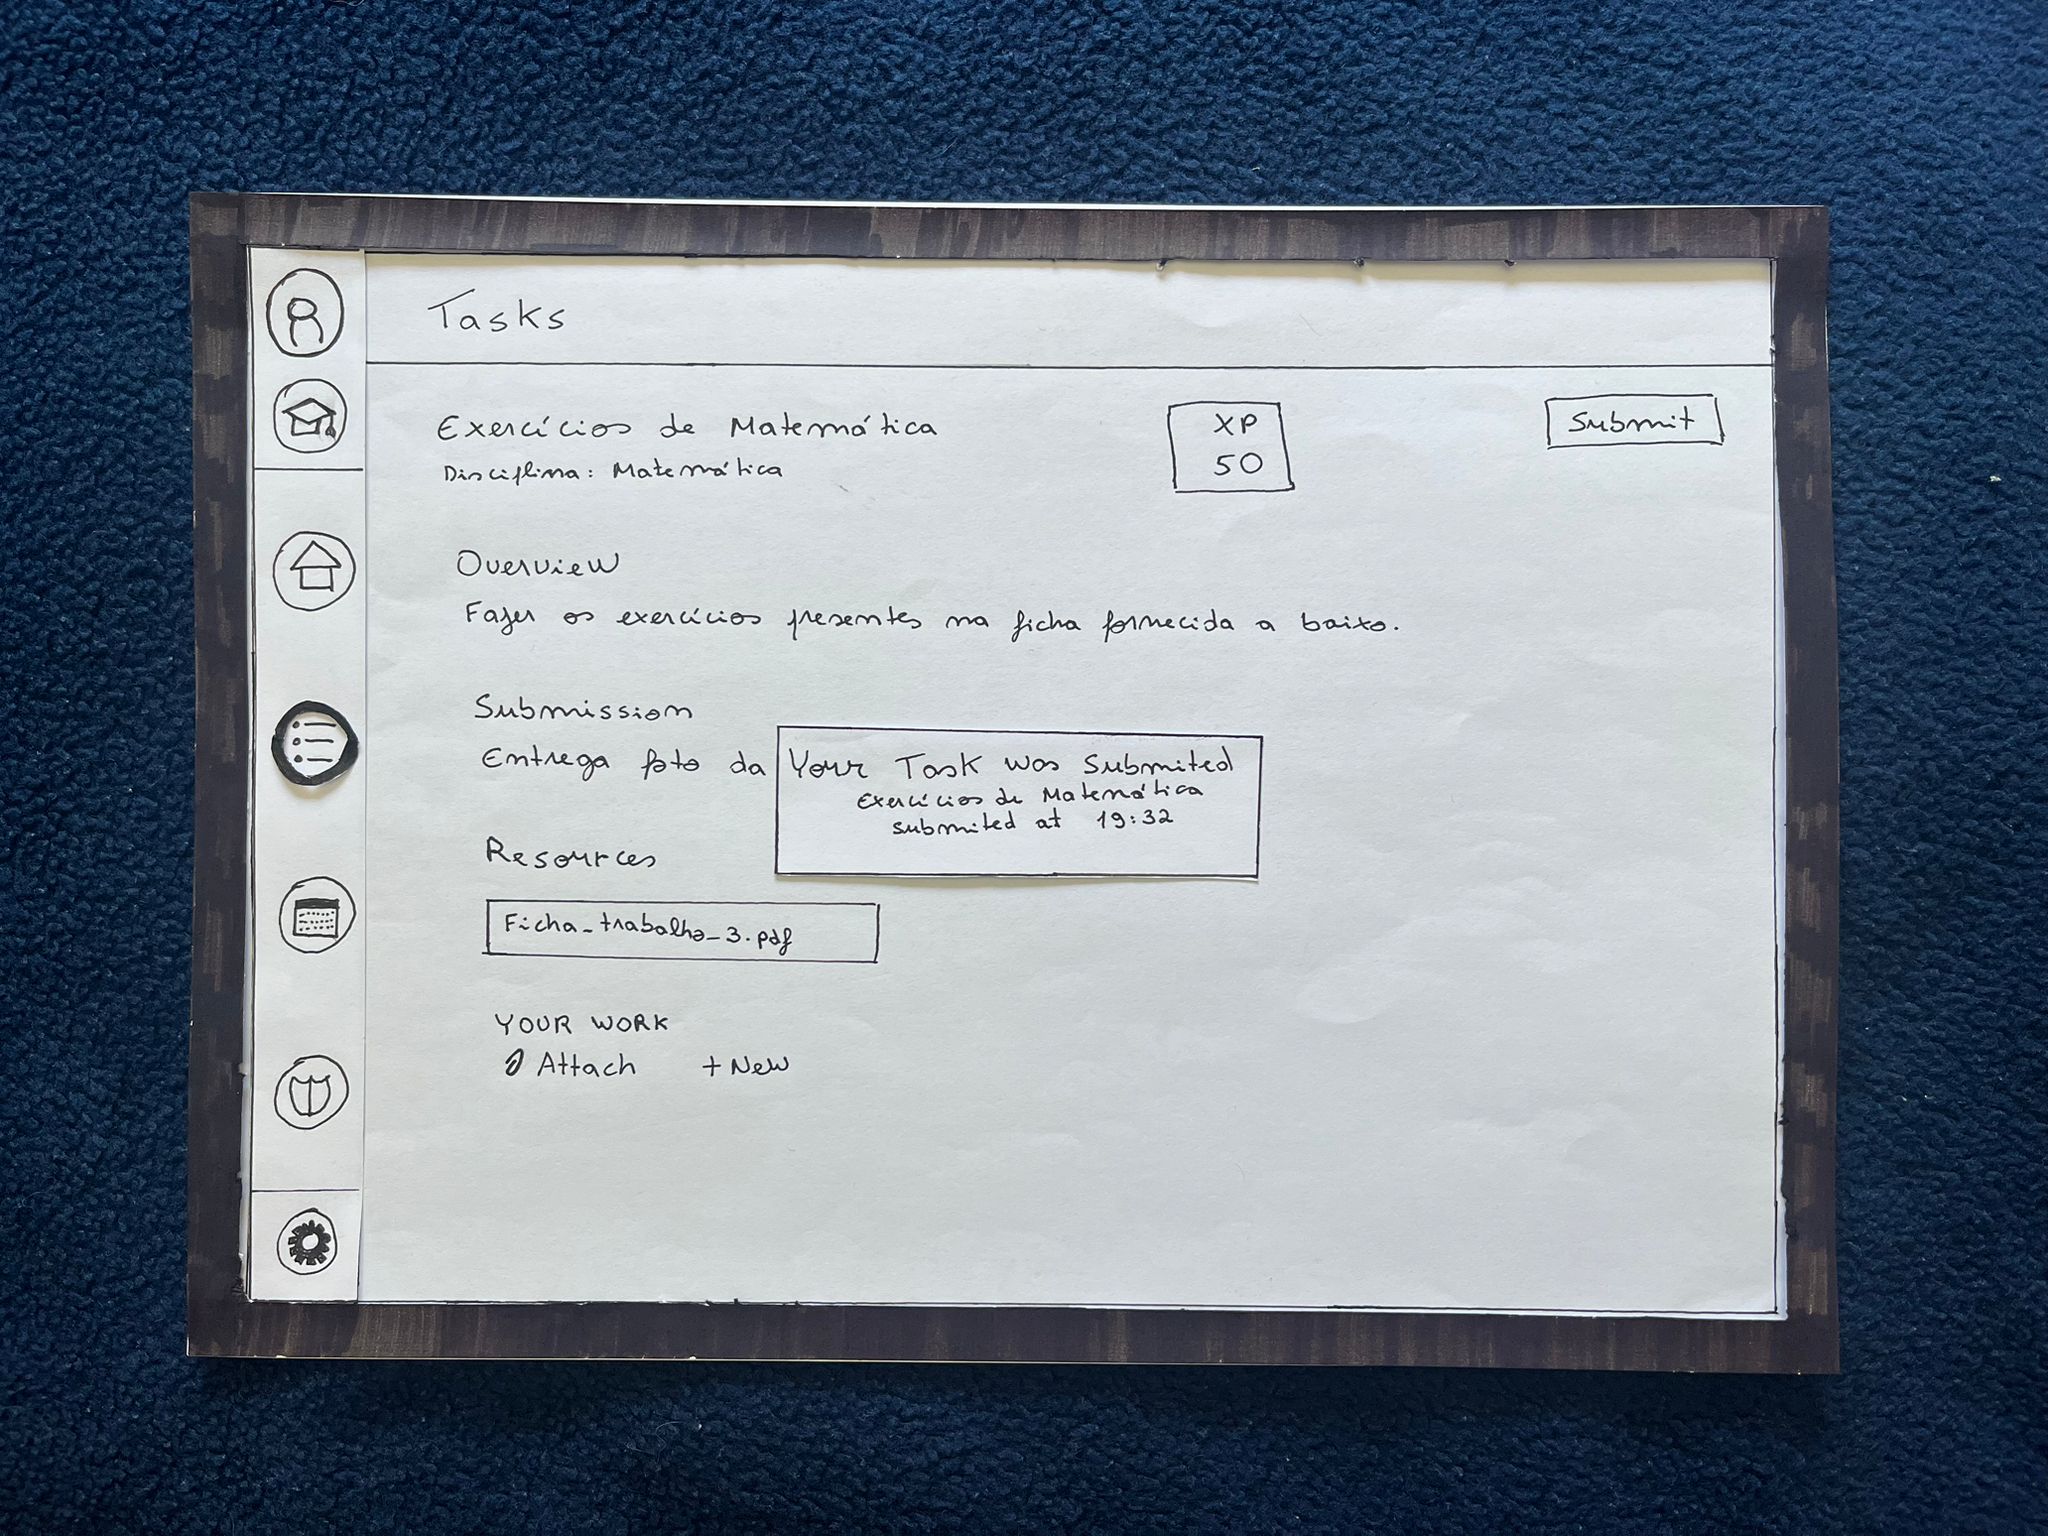 Tasks
Exercícios de Matemática
Disciplina: Matemática
XP
50
Submit
Overview
Fazer os exercícios presentes na ficha fornecida a baixo.
Submission
Entrega foto da
Your Task was Submited
Exercícios de Matemática
submited at 19:32
Resources
Ficha_trabalho_3.pdf
YOUR WORK
Attach + New